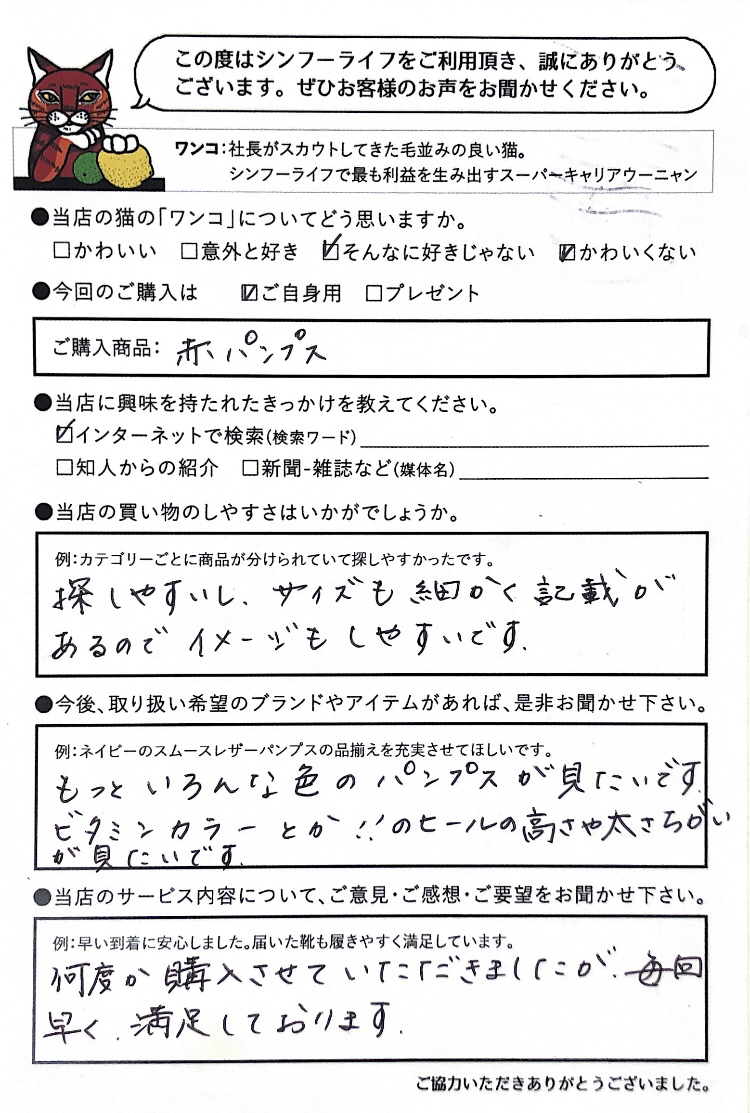 この度はシンフーライフをご利用頂き、誠にありがとう
ございます。ぜひお客様のお声をお聞かせください。
ワンコ：社長がスカウトしてきた毛並みの良い猫。
シンフーライフで最も利益を生み出すスーパーキャリアウーニャン
●当店の猫の「ワンコ」についてどう思いますか。
□かわいい □意外と好き ☑そんなに好きじゃない ☑かわいくない
●今回のご購入は ☑ご自身用 □プレゼント
ご購入商品： 赤パンプス
●当店に興味を持たれたきっかけを教えてください。
☑インターネットで検索(検索ワード)
□知人からの紹介 □新聞-雑誌など(媒体名)
●当店の買い物のしやすさはいかがでしょうか。
例：カテゴリーごとに商品が分けられていて探しやすかったです。
探しやすいし、サイズも細かく記載が
あるのでイメージもしやすいです.
●今後、取り扱い希望のブランドやアイテムがあれば、是非お聞かせ下さい。
例：ネイビーのスムースレザーパンプスの品揃えを充実させてほしいです。
もっといろんな色のパンプスが見たいです
ビタミンカラーとか!!のヒールの高さや太さちがい
が見たいです.
●当店のサービス内容について、ご意見・ご感想・ご要望をお聞かせ下さい。
例：早い到着に安心しました。届いた靴も履きやすく満足しています。
何度か購入させていただきましたが、毎回
早く、満足しております.
ご協力いただきありがとうございました。